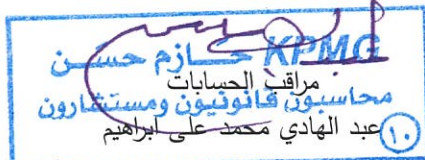 KPMG حازم حسن
مراقب الحسابات
محاسبون قانونيون ومستشارون
عبد الهادي محمد على ابراهيم
١٠